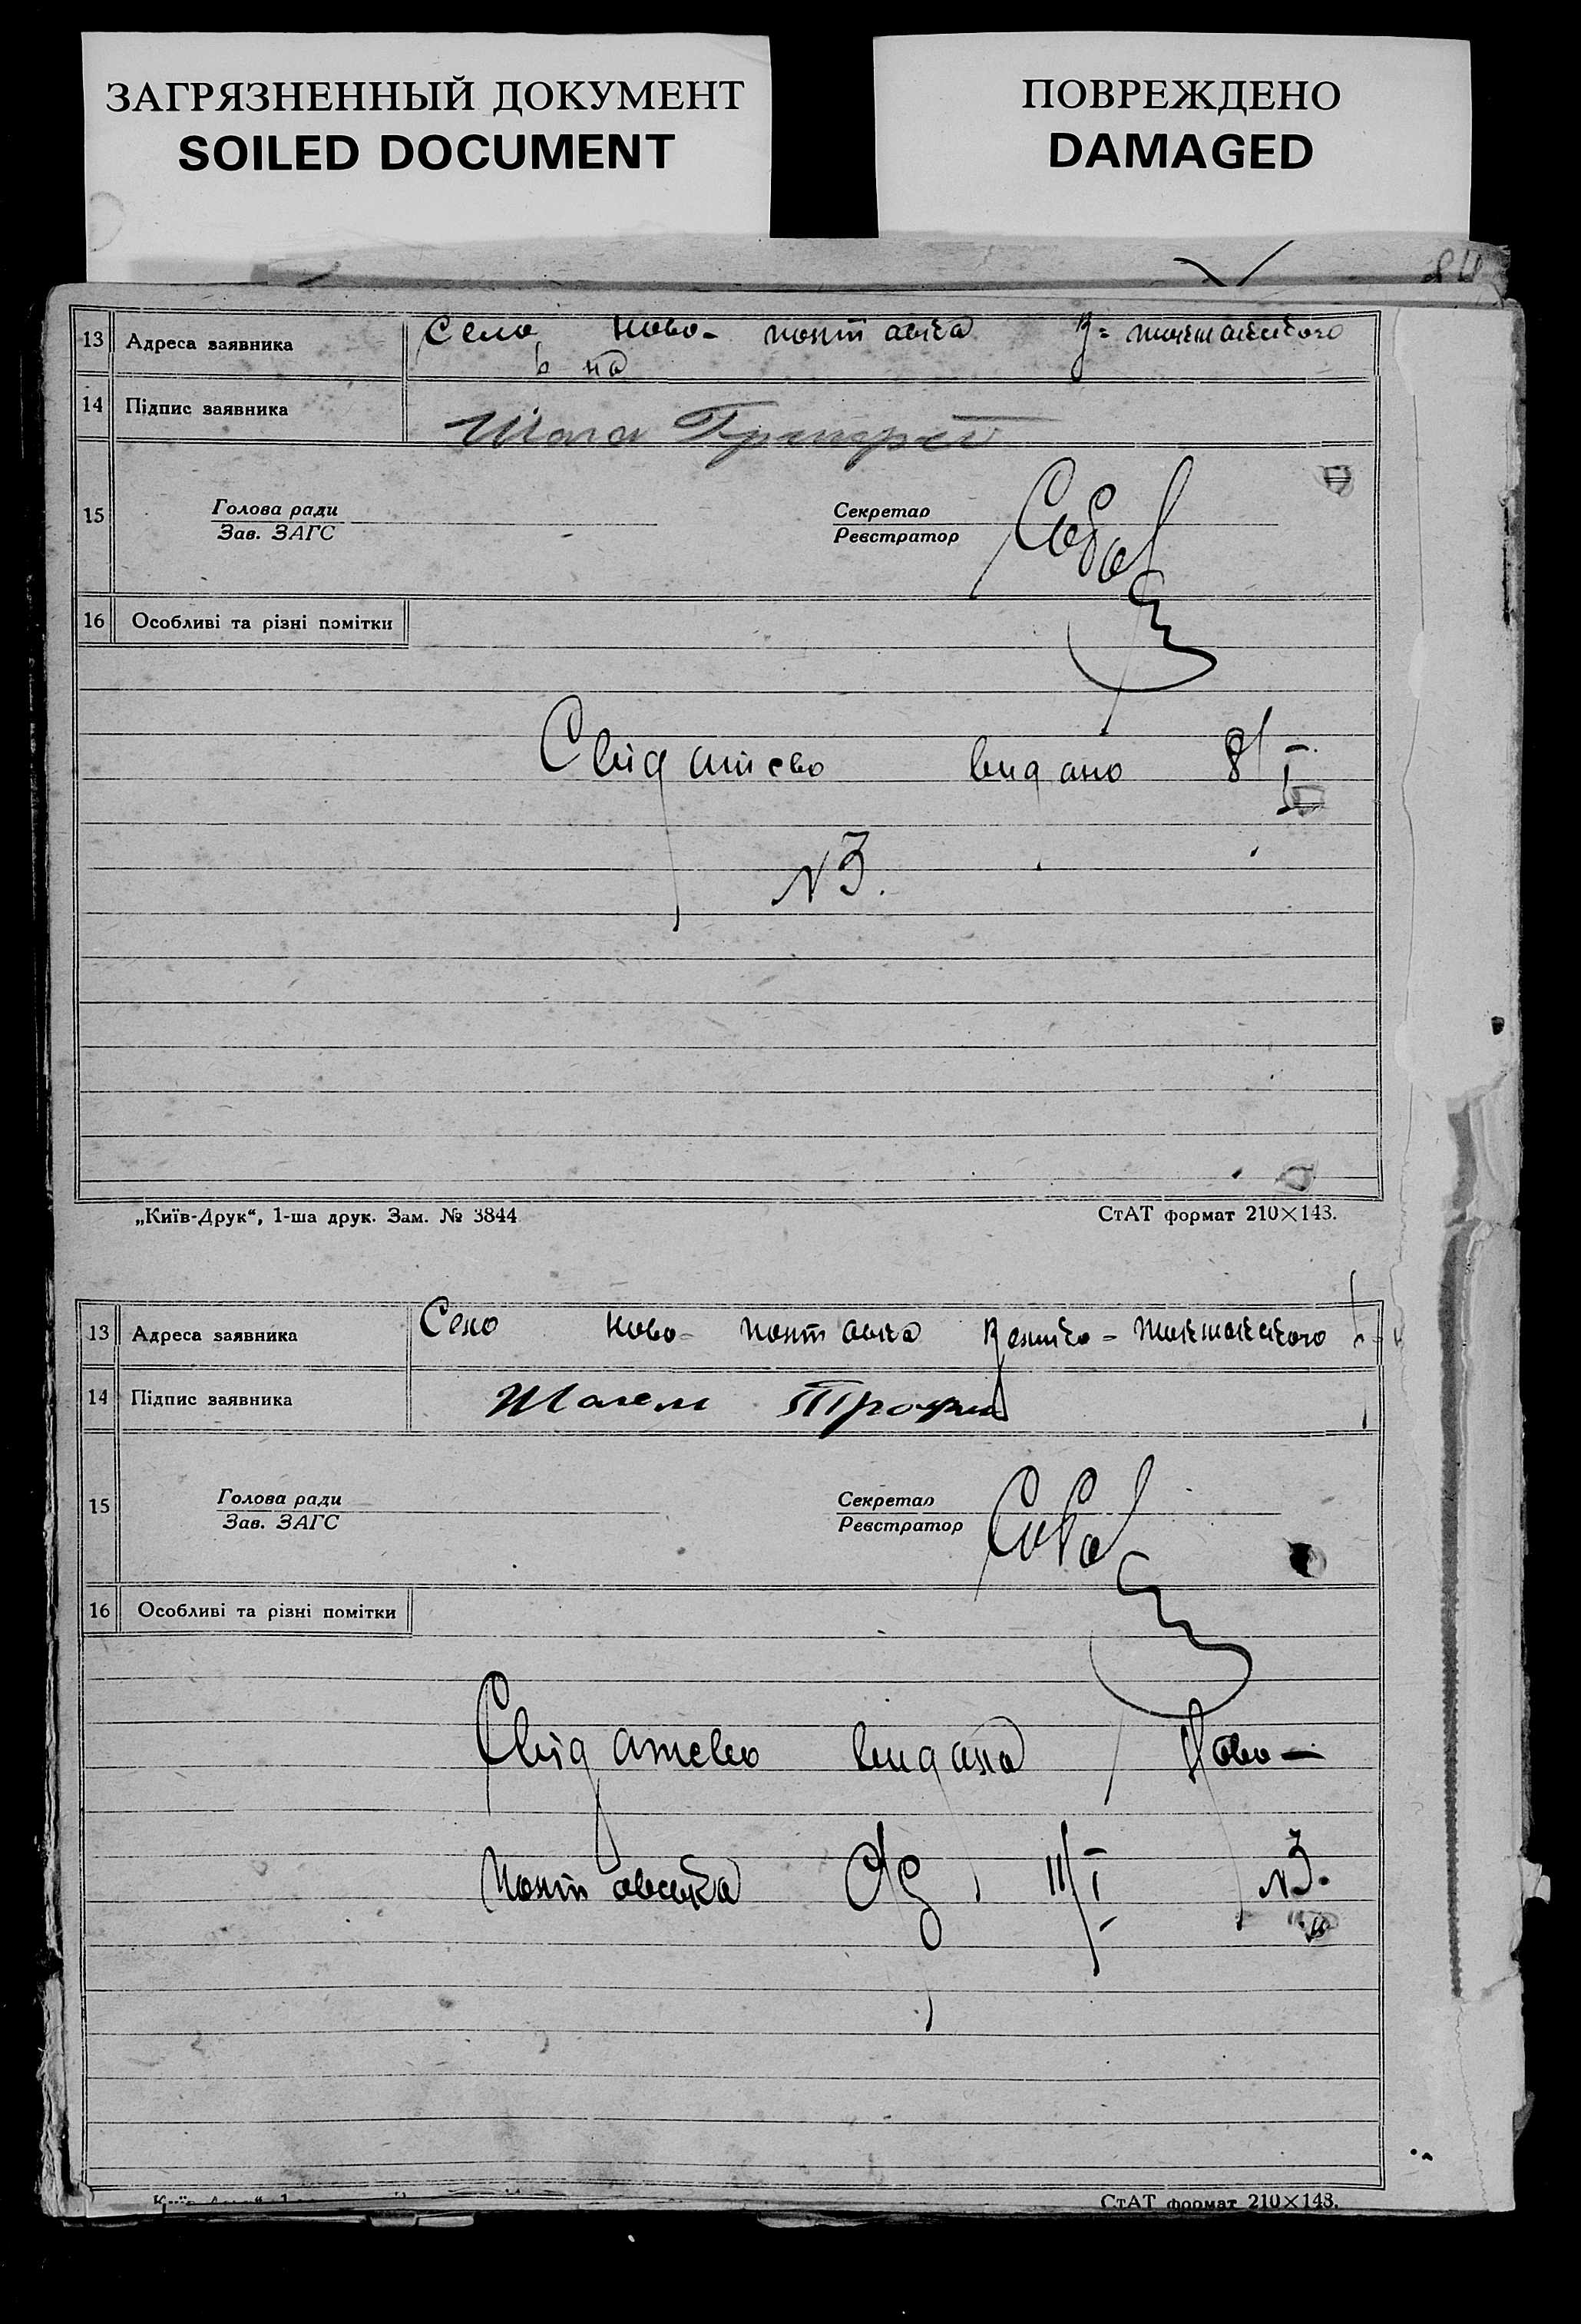 ЗАГРЯЗНЕННЫЙ ДОКУМЕНТ
SOILED DOCUMENT
ПОВРЕЖДЕНО
DAMAGED
84
13 Адреса заявника Село Ново- полтавка В= токмакського
р на
14 Підпис заявника
15 Голова ради
Зав. ЗАГС
Секретар
Реєстратор
16 Особливі та різні помітки
Свідатсво видано 8/I
N3.
„Київ-Друк“, 1-ша друк. Зам. № 3844
СтАТ формат 210×143.
13 Адреса заявника Село Ново- полтавка Велико - токмакського
14 Підпис заявника
15 Голова ради
Зав. ЗАГС
Секретар
Реєстратор
16 Особливі та різні помітки
Свідатсво видана Ново —
полтавська С/Р 11/I N3.
СтАТ формат 210×143.